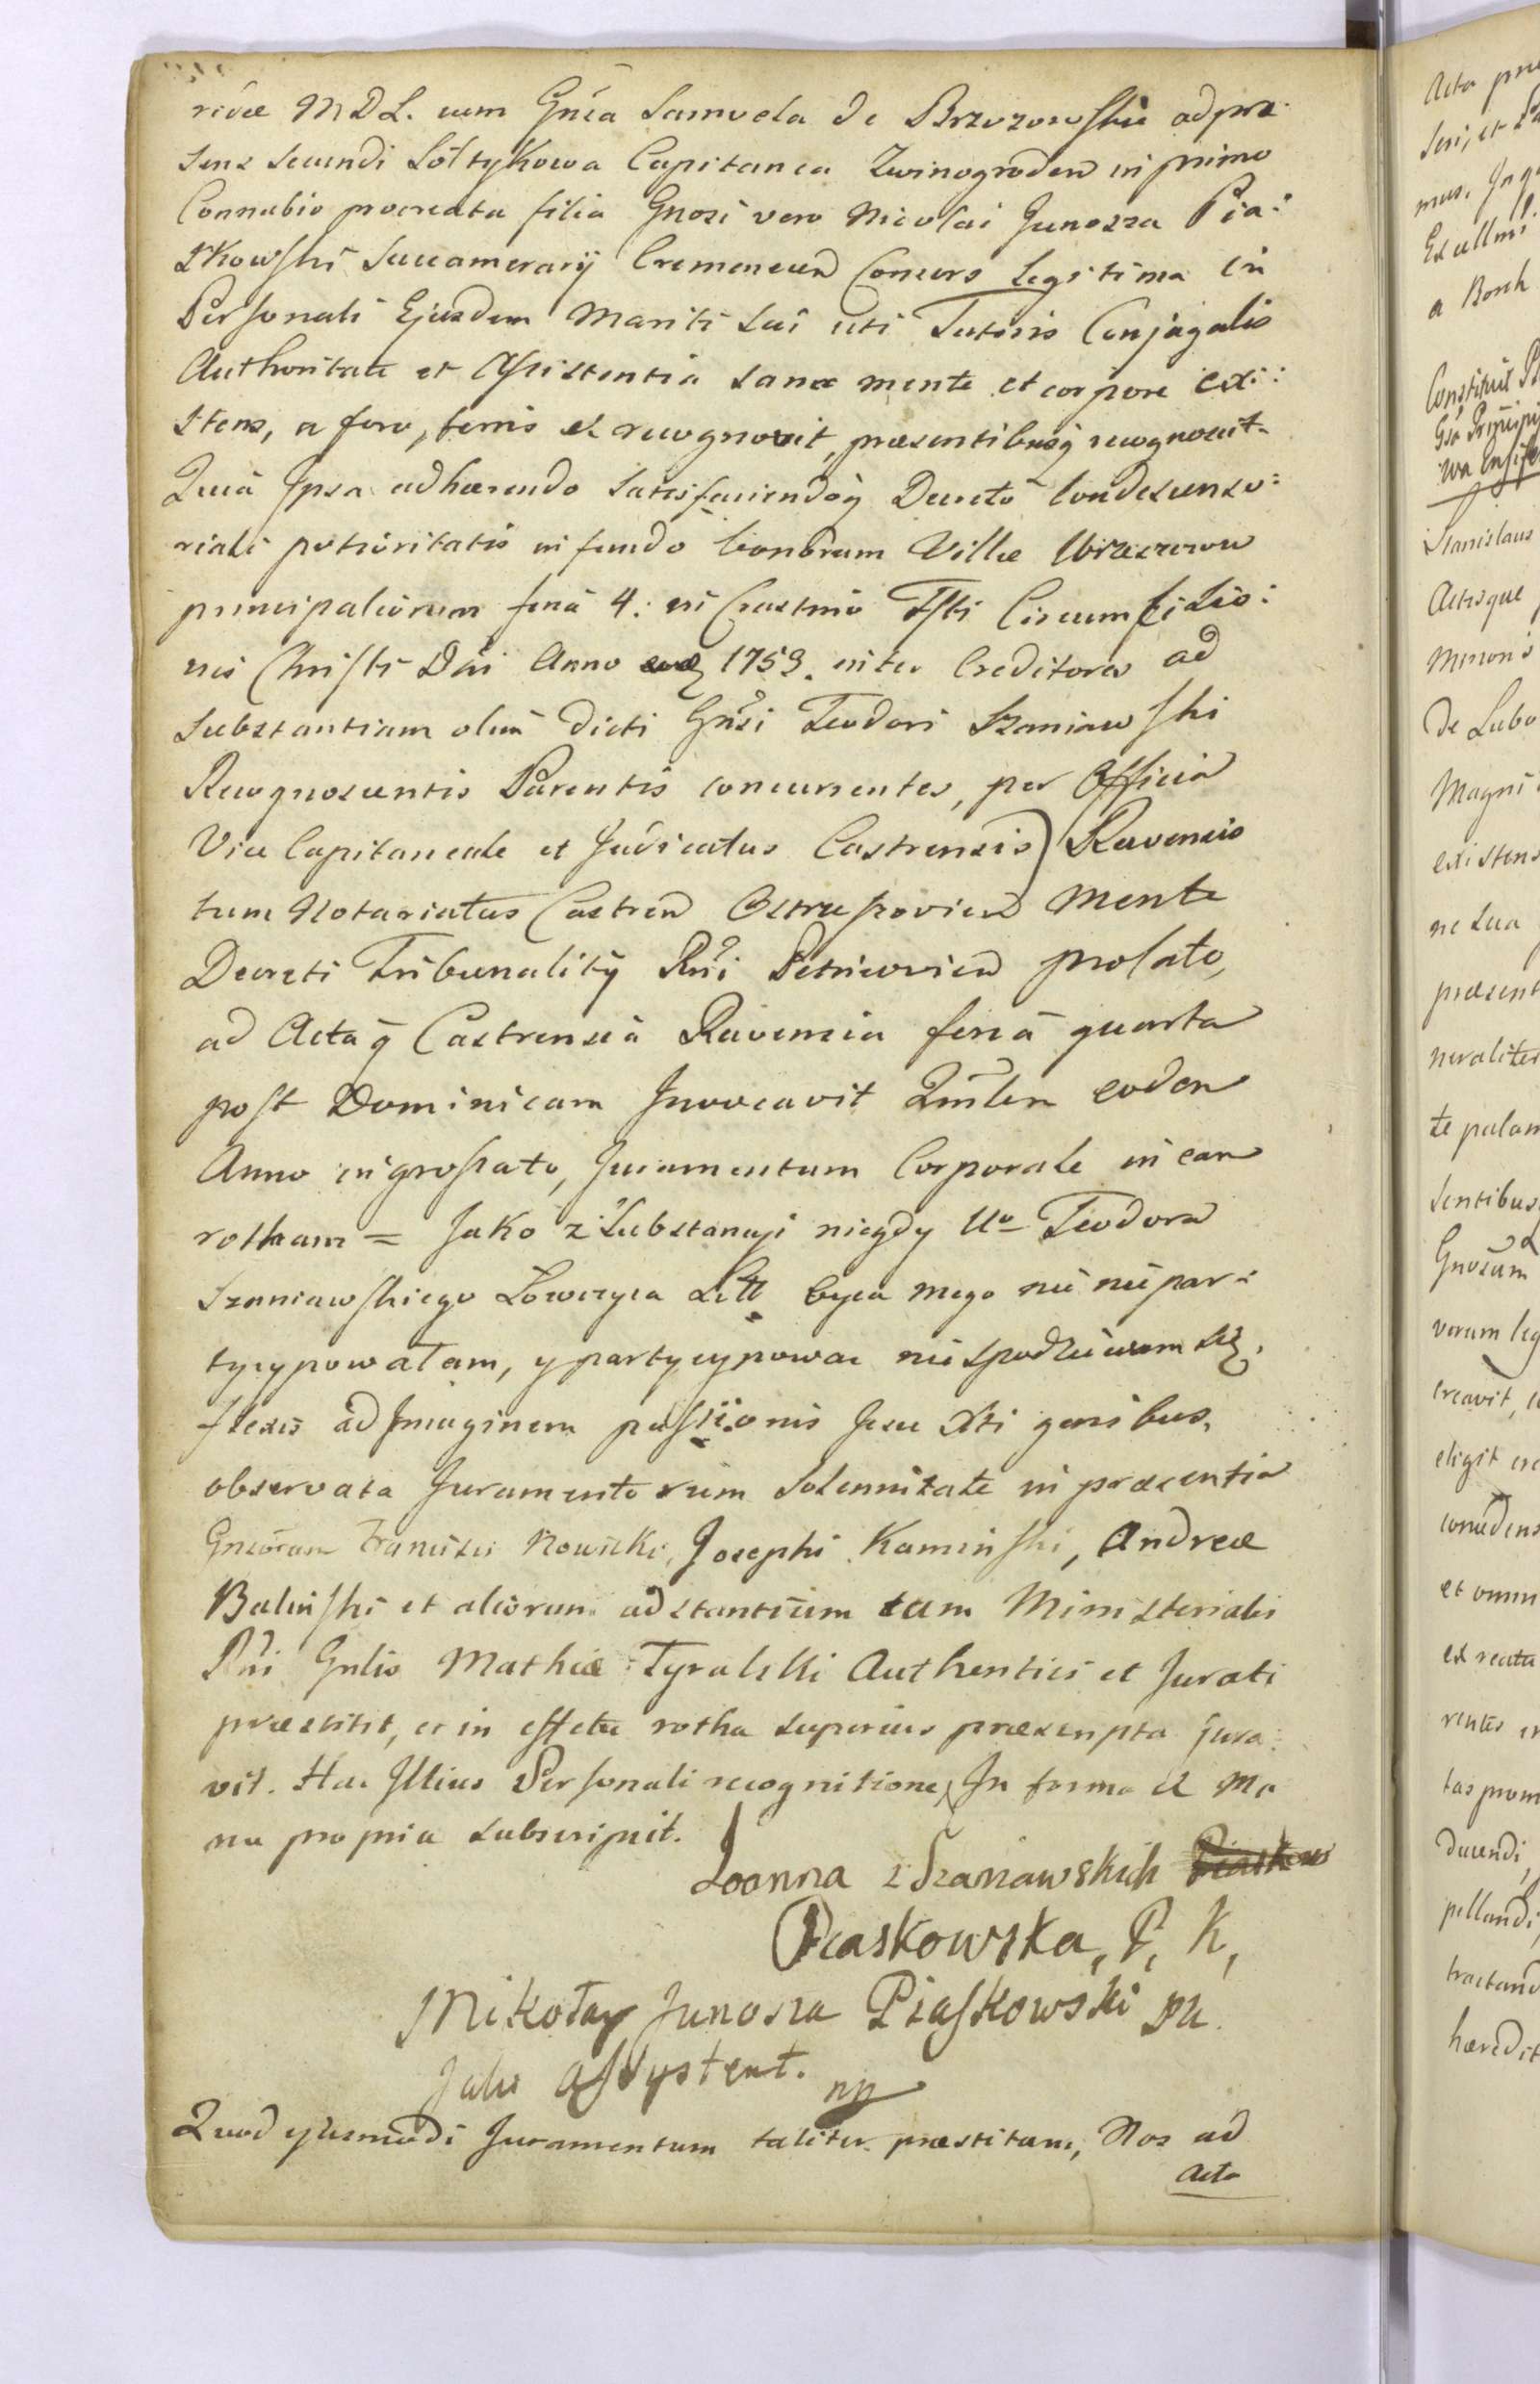 ridæ M D L. cum Gnẽa Samuela de Brzozowskie ad præ:
sens secundi Sołtykowa Capitanea Zwinogroden in primo
Connubio procreata filia Gnosi vero Nicolai Junosza Pia:
skowski Succamerarij Cremenecen Consors Legitima in
Personali Ejusdem Mariti sui uti Tutoris Conjugalis
Authoritate et Assistentia sana mente et corpore exi:
stens, a foro, terris et recognovit, præsentibusq recognoscit.
Quia Ipsa adhærendo satisfaciendoq Decreto Condescenso:
riali potioritatis in fundo bonorum Villæ
principaliorum feria 4: in Crastino Fsti Circumcisio:
nis Christi Dni Anno 1759. inter Creditores ad
Substantiam olim dicti Gnsi Teodori Szaniawski
Recognoscentis Parentis concurrentes, per Officia
Vice Capitaneale et Judicatus Castrensis) Ravensis
tum Notariatus Castren mente
Decreti Tribunalitij Rni prolato,
ad Actaq Castrensia Ravensia feria quarta
post Dominicam Invocavit Qmlem eodem
Anno ingrossato, Juramentum Corporale in eam
rotham = Jako z Substancyi niegdy Uo Teodora
Szaniawskiego Łowczyca Litt oyca mego nic nie par:
tycypowałam, y partycypować nie spodziewam się,
flexis ad Imaginem passionis Jesu Xti genibus,
observata Juramentorum Solennitate in præsentia
Gnsorum Francisci Nowicki, Josephi Kaminski, Andreæ
Balinski et aliorum adstantium tam Ministerialis
Rni Gnlis Mathiæ Tyralski Authentici et Jurati
præstitit, et in effectu rotha superius præscripta jura:
vit. Hac Illius Personali recognitione, In forma et Ma
nu propria subscripsit.
Joanna z Szaniawskich Piaskows
Piaskowska, P, K,
Mikołay Junosza Piaskowski PK
Jako assystent. mp
Quod ejusmodi Juramentum taliter præstitum, Nos ad
Acta
Acta præ
seri, et
mus.
Excellmi
a Borch
Constituit
Gsa Principi
Stanislaus
Actisque
Minoris
de Lubo
Magni
existens
ne sua
præsent
neraliter
te palam
sentibus
Gnosum
verum leg
creavit,
eligit
concedens
et omni
ex recta
rentes
tas prom
ducendi,
pellandi,
tractand
hæredit